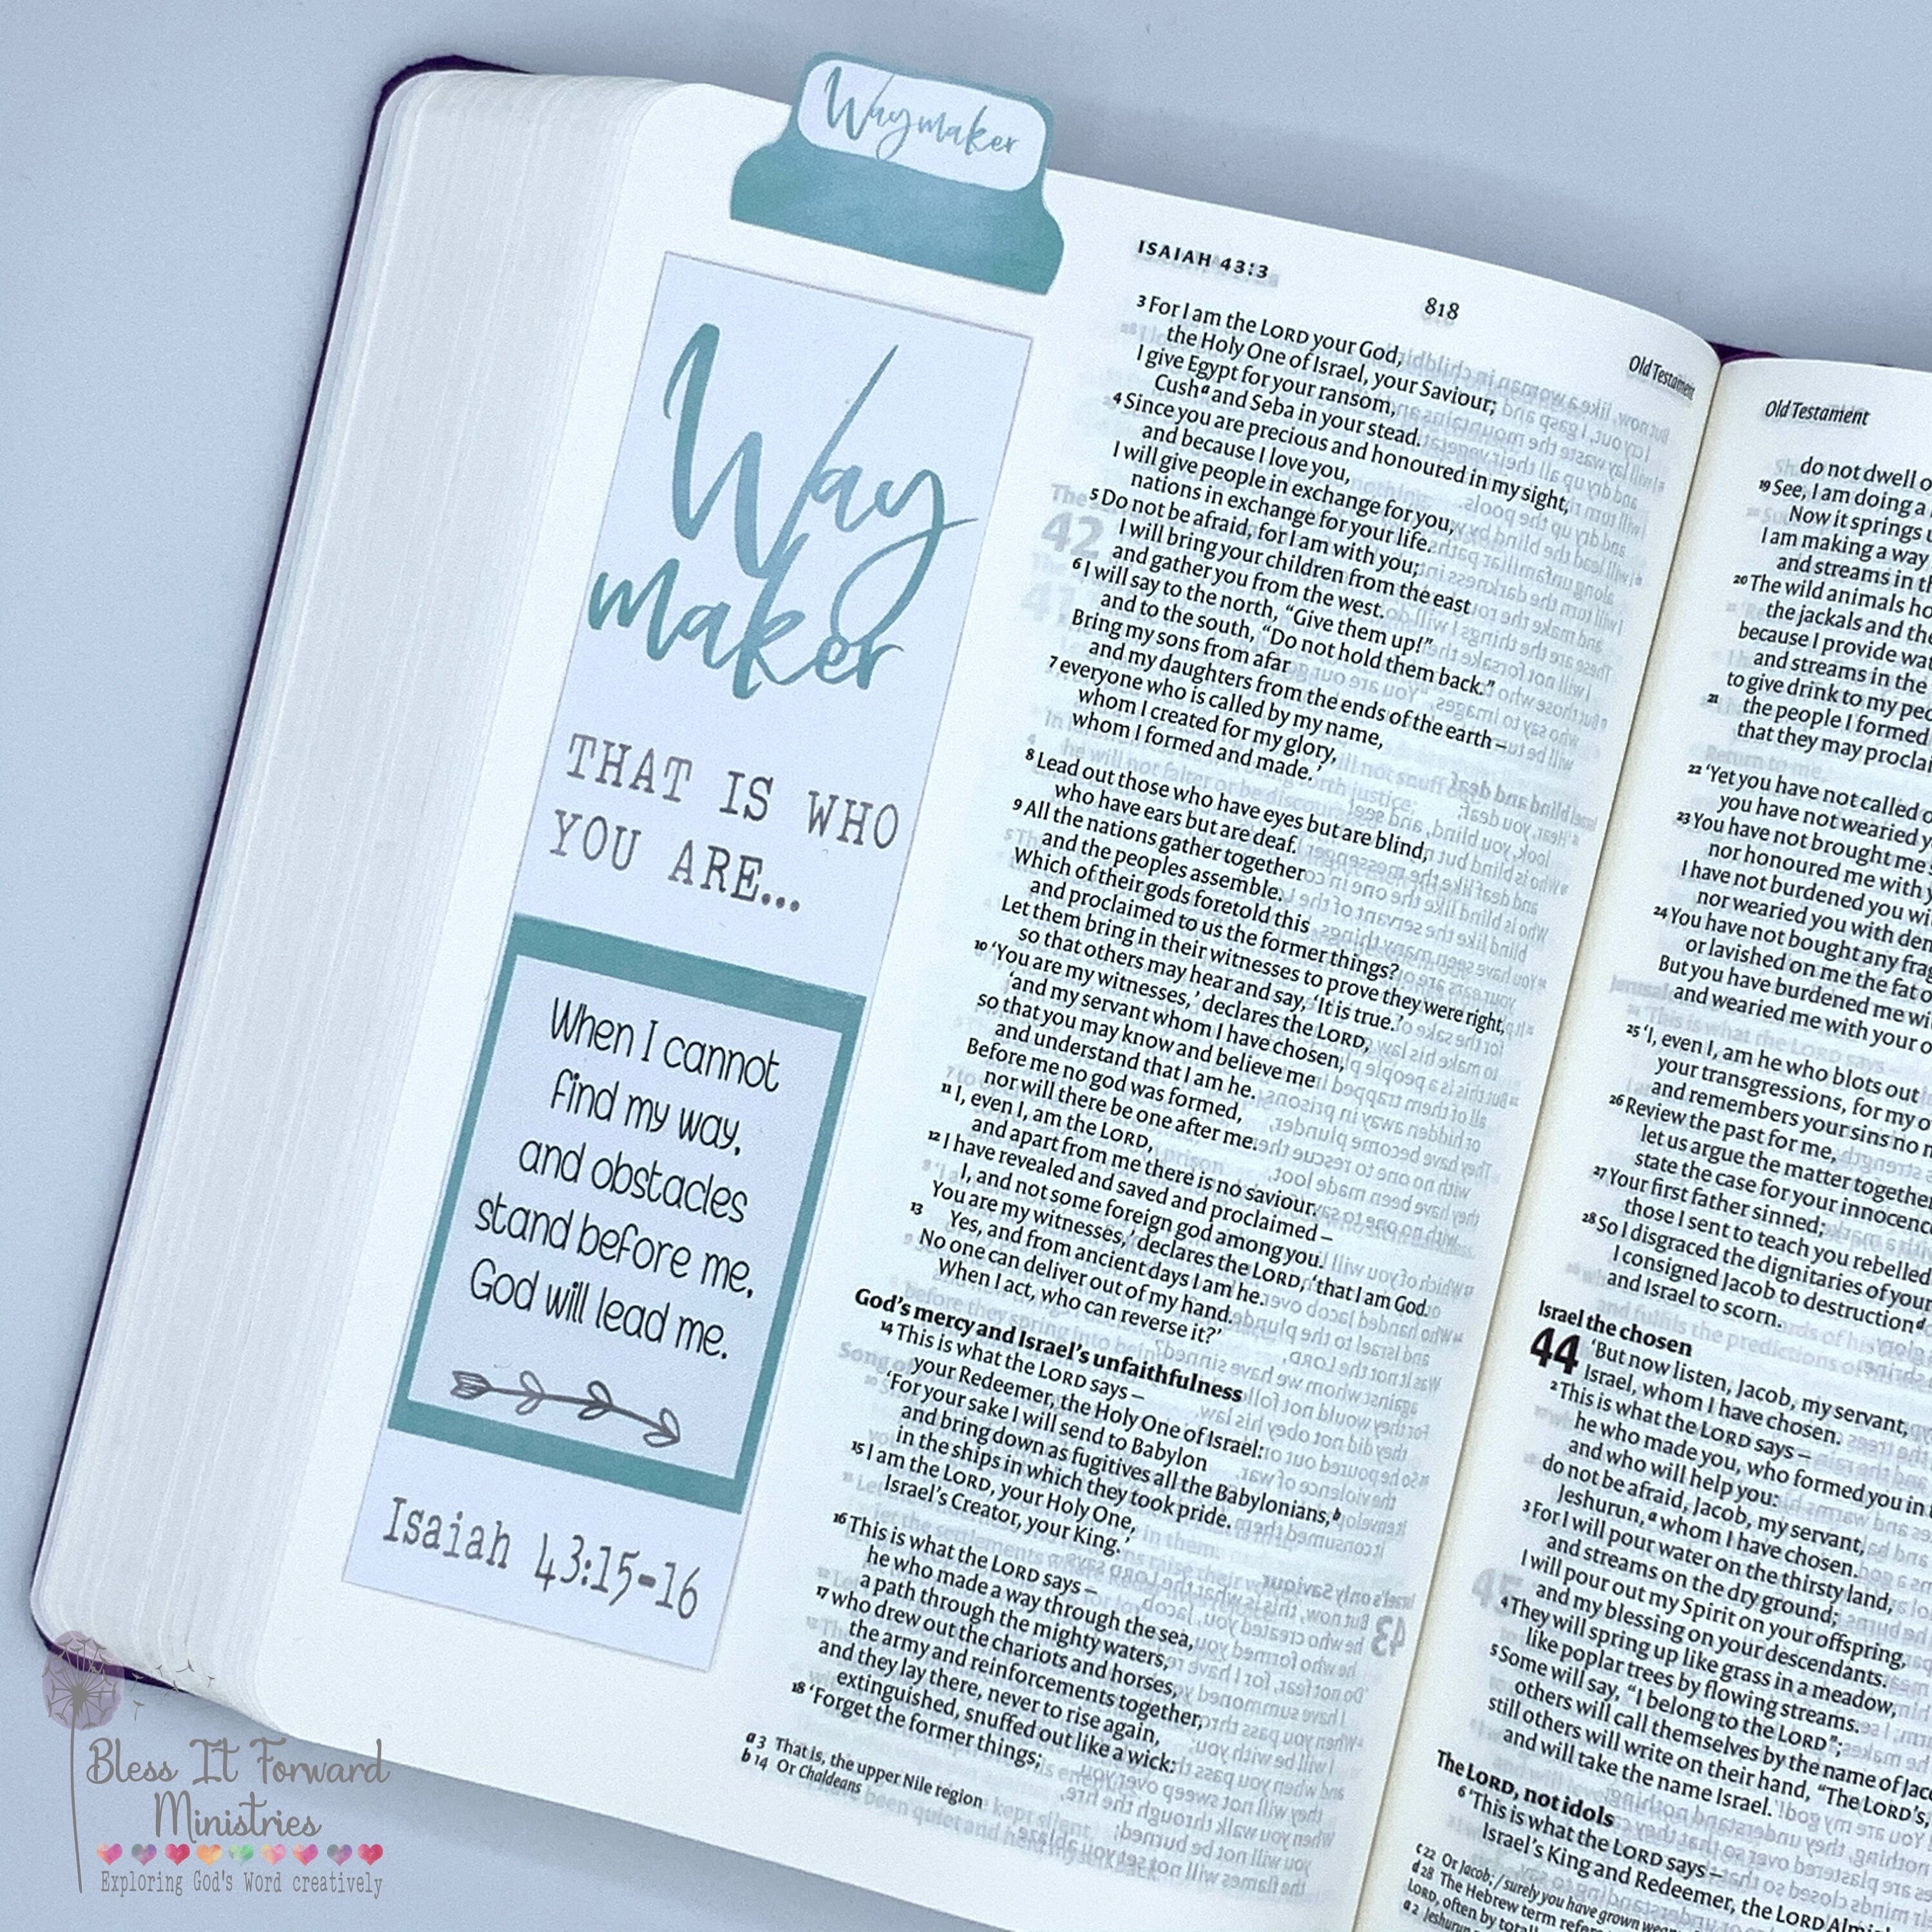 Waymaker
Way
maker
THAT IS WHO
YOU ARE...
When I cannot
find my way,
and obstacles
stand before me,
God will lead me.
Isaiah 43:15-16
ISAIAH 43:3
818
Old Testament
3 For I am the LORD your God,
the Holy One of Israel, your Saviour;
I give Egypt for your ransom,
Cush a and Seba in your stead.
4 Since you are precious and honoured in my sight,
and because I love you,
I will give people in exchange for you,
nations in exchange for your life.
5 Do not be afraid, for I am with you;
I will bring your children from the east
and gather you from the west.
6 I will say to the north, “Give them up!”
and to the south, “Do not hold them back.”
Bring my sons from afar
and my daughters from the ends of the earth –
7 everyone who is called by my name,
whom I created for my glory,
whom I formed and made.’
8 Lead out those who have eyes but are blind,
who have ears but are deaf.
9 All the nations gather together
and the peoples assemble.
Which of their gods foretold this
and proclaimed to us the former things?
Let them bring in their witnesses to prove they were right,
so that others may hear and say, ‘It is true.’
10 ‘You are my witnesses,’ declares the LORD,
‘and my servant whom I have chosen,
so that you may know and believe me
and understand that I am he.
Before me no god was formed,
nor will there be one after me.
11 I, even I, am the LORD,
and apart from me there is no saviour.
12 I have revealed and saved and proclaimed –
I, and not some foreign god among you.
You are my witnesses,’ declares the LORD, ‘that I am God.
13 Yes, and from ancient days I am he.
No one can deliver out of my hand.
When I act, who can reverse it?’
God’s mercy and Israel’s unfaithfulness
14 This is what the LORD says –
your Redeemer, the Holy One of Israel:
‘For your sake I will send to Babylon
and bring down as fugitives all the Babylonians, b
in the ships in which they took pride.
15 I am the LORD, your Holy One,
Israel’s Creator, your King.’
16 This is what the LORD says –
he who made a way through the sea,
a path through the mighty waters,
17 who drew out the chariots and horses,
the army and reinforcements together,
and they lay there, never to rise again,
extinguished, snuffed out like a wick:
18 ‘Forget the former things;
a 3 That is, the upper Nile region
b 14 Or Chaldeans
Old Testament
do not dwell
19 See, I am doing a
Now it springs
I am making a way
and streams in
20 The wild animals
the jackals and
because I provide
and streams in the
to give drink to my
21 the people I formed
that they may
22 ‘Yet you have not called
you have not wearied
23 You have not brought me
nor honoured me with
I have not burdened you
nor wearied you with
24 You have not bought any
or lavished on me the fat
But you have burdened me
and wearied me with your
25 ‘I, even I, am he who blots out
your transgressions, for my
and remembers your sins no
26 Review the past for me,
let us argue the matter together
state the case for your
27 Your first father sinned;
those I sent to teach you rebelled
28 So I disgraced the dignitaries of your
I consigned Jacob to destruction d
and Israel to scorn.
Israel the chosen
44 ‘But now listen, Jacob, my servant,
Israel, whom I have chosen.
2 This is what the LORD says –
he who made you, who formed you in
and who will help you:
do not be afraid, Jacob, my servant,
Jeshurun, a whom I have chosen.
3 For I will pour water on the thirsty land,
and streams on the dry ground;
I will pour out my Spirit on your offspring,
and my blessing on your descendants.
4 They will spring up like grass in a meadow,
like poplar trees by flowing streams.
5 Some will say, “I belong to the LORD”;
others will call themselves by the name of
still others will write on their hand, “The LORD’s,
and will take the name Israel.
The LORD, not idols
6 ‘This is what the LORD says –
Israel’s King and Redeemer, the LORD
c 22 Or Jacob; / surely you have grown
d 28 The Hebrew term
LORD, often by
a 2 Jeshurun
Bless It Forward
Ministries
Exploring God's Word creatively